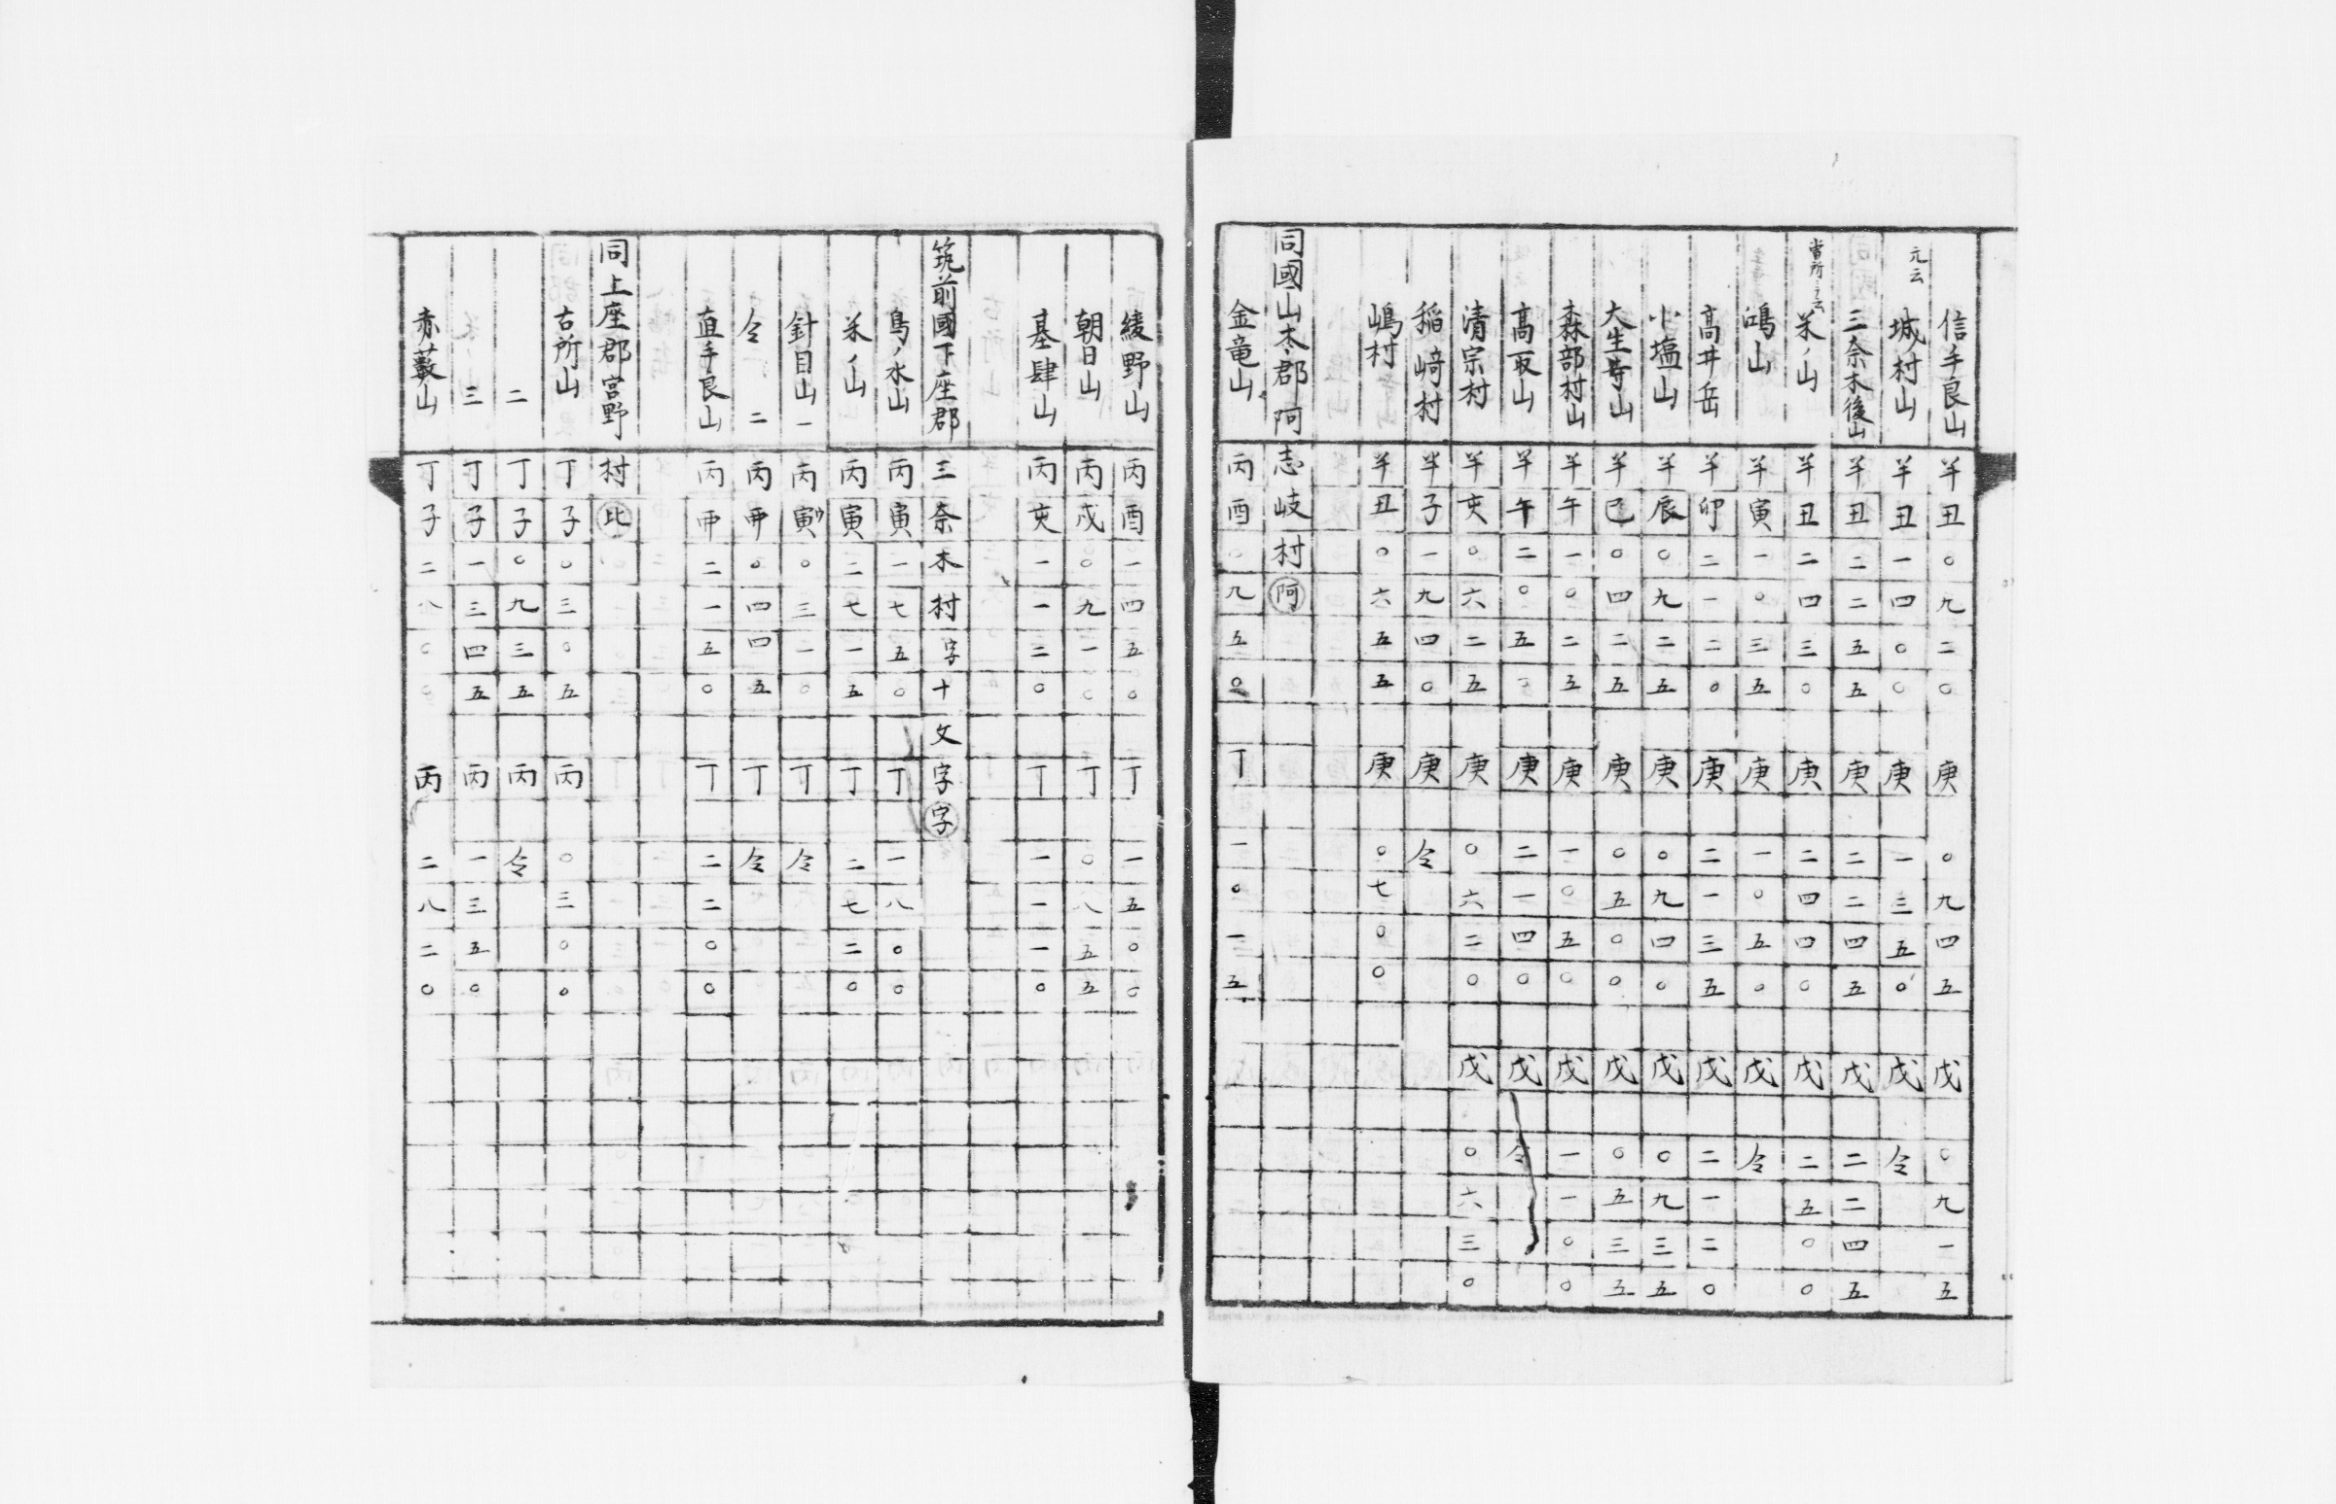 信手良山 羊丑〇九二〇 庚〇九四五 戊〇九一五
元云 城村山 羊丑一四〇〇 庚一三五〇 戊仝
三奈木後山 羊丑二二五五 庚二二四五 戊二二四五
當所ニ云 米ノ山 羊丑二四三〇 庚二四四〇 戊二五〇〇
鴻山 羊寅一〇三五 庚一〇五〇 戊仝
高井岳 羊卯二一二〇 庚二一三五 戊二一二〇
小塩山 羊辰〇九二五 庚〇九四〇 戊〇九三五
大生寺山 羊巳〇四二五 庚〇五〇〇 戊〇五三五
森部村山 羊午一〇二五 庚一〇五〇 戊一一〇〇
高取山 羊午二〇五〇 庚二一四〇 戊仝
清宗村 羊亥〇六二五 庚〇六二〇 戊〇六三〇
稲﨑村 羊子一九四〇 庚仝
嶋村 羊丑〇六五五 庚〇七〇〇
同國山本郡阿志岐村 阿
金竜山 丙酉〇九五〇 丁一〇一五
綾野山 丙酉一四五〇 丁一五〇〇
朝日山 丙戌〇九一〇 丁〇八五五
基肆山 丙亥一一二〇 丁一一一〇
筑前國下座郡三奈木村字十文字 字
鳥ノ水山 丙寅一七五〇 丁一八〇〇
米ノ山 丙寅二七一五 丁二七二〇
針目山一 丙寅卯〇三一〇 丁仝
仝 二 丙卯〇四四五 丁仝
直手良山 丙卯二一五〇 丁二二〇〇
同上座郡宮野村 比
古所山 丁子〇三〇五 丙〇三〇〇
二 丁子〇九三五 丙仝
三 丁子一三四五 丙一三五〇
赤藪山 丁子二八〇〇 丙二八二〇